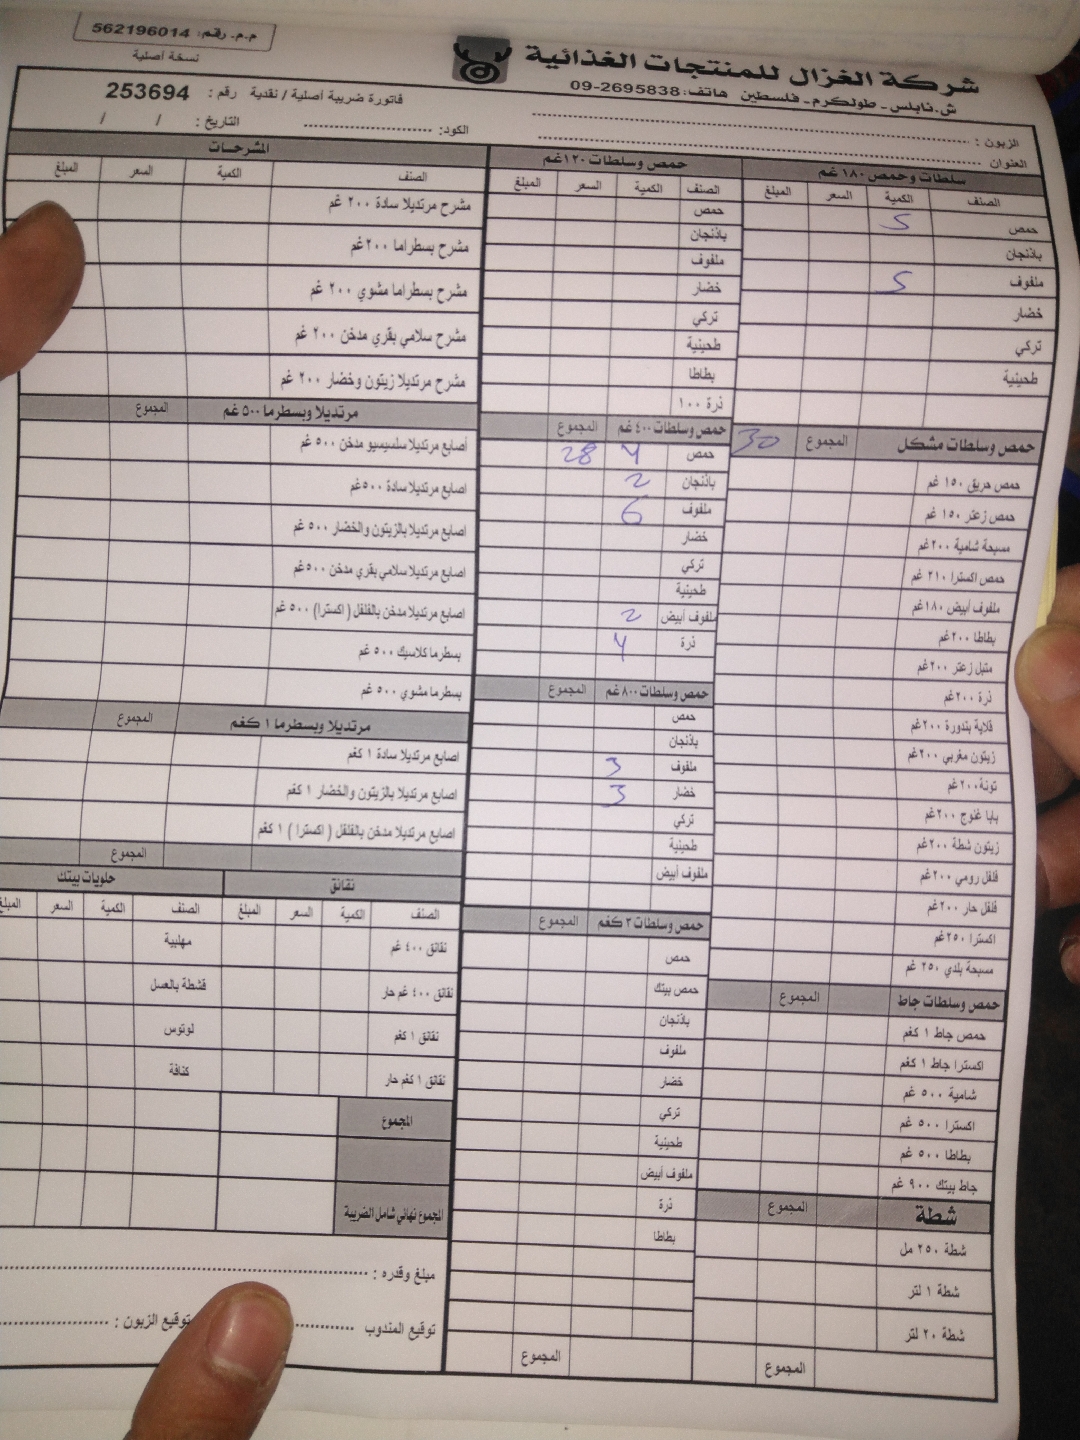 م.م. رقم: 562196014
نسخة أصلية
شركة الغزال للمنتجات الغذائية
ش.نابلس - طولكرم - فلسطين هاتف: 09-2695838
فاتورة ضريبية أصلية / نقدية رقم : 253694
الزبون :
العنوان
الكود:
التاريخ : / /
سلطات وحمص ١٨٠ غم
الصنف الكمية السعر المبلغ
حمص 5
باذنجان
ملفوف 5
خضار
تركي
طحينية
حمص وسلطات مشكل المجموع 30
حمص حريق ١٥٠ غم
حمص زعتر ١٥٠ غم
مسبحة شامية ٢٠٠غم
حمص اكسترا ٢١٠ غم
ملفوف أبيض ١٨٠غم
بطاطا ٢٠٠غم
متبل زعتر ٢٠٠غم
ذرة ٢٠٠غم
قلاية بندورة ٢٠٠غم
زيتون مغربي ٢٠٠غم
تونة ٢٠٠غم
بابا غنوج ٢٠٠غم
زيتون شطة ٢٠٠غم
فلفل رومي ٢٠٠غم
فلفل حار ٢٠٠غم
اكسترا ٢٥٠غم
مسبحة بلدي ٢٥٠ غم
حمص وسلطات جاط المجموع
حمص جاط ١ كغم
اكسترا جاط ١ كغم
شامية ٥٠٠ غم
اكسترا ٥٠٠ غم
بطاطا ٥٠٠ غم
جاط بيتك ٩٠٠ غم
شطة المجموع
شطة ٢٥٠ مل
شطة ١ لتر
شطة ٢٠ لتر
المجموع
حمص وسلطات ١٢٠غم
الصنف الكمية السعر المبلغ
حمص
باذنجان
ملفوف
خضار
تركي
طحينية
بطاطا
ذرة ١٠٠
حمص وسلطات ٤٠٠ غم المجموع
حمص 4 28
باذنجان 2
ملفوف 6
خضار
تركي
طحينية
ملفوف أبيض 2
ذرة 4
حمص وسلطات ٨٠٠ غم المجموع
حمص
باذنجان
ملفوف 3
خضار 3
تركي
طحينية
ملفوف أبيض
حمص وسلطات ٣ كغم المجموع
حمص
حمص بيتك
باذنجان
ملفوف
خضار
تركي
طحينية
ملفوف أبيض
ذرة
بطاطا
المجموع
المشرحات
الصنف الكمية السعر المبلغ
مشرح مرتديلا سادة ٢٠٠ غم
مشرح بسطراما ٢٠٠غم
مشرح بسطراما مشوي ٢٠٠ غم
مشرح سلامي بقري مدخن ٢٠٠ غم
مشرح مرتديلا زيتون وخضار ٢٠٠ غم
مرتديلا وبسطرما ٥٠٠ غم المجموع
اصابع مرتديلا سلسيسيو مدخن ٥٠٠ غم
اصابع مرتديلا سادة ٥٠٠غم
اصابع مرتديلا بالزيتون والخضار ٥٠٠ غم
اصابع مرتديلا سلامي بقري مدخن ٥٠٠غم
اصابع مرتديلا مدخن بالفلفل (اكسترا) ٥٠٠ غم
بسطرما كلاسيك ٥٠٠ غم
بسطرما مشوي ٥٠٠ غم
مرتديلا وبسطرما ١ كغم المجموع
اصابع مرتديلا سادة ١ كغم
اصابع مرتديلا بالزيتون والخضار ١ كغم
اصابع مرتديلا مدخن بالفلفل ( اكسترا ) ١ كغم
المجموع
نقانق
الصنف الكمية السعر المبلغ
نقانق ٤٠٠ غم
نقانق ٤٠٠ غم حار
نقانق ١ كغم
نقانق ١ كغم حار
حلويات بيتك
الصنف الكمية السعر المبلغ
مهلبية
قشطة بالعسل
لوتوس
كنافة
المجموع
المجموع نهائي شامل الضريبة
مبلغ وقدره :
توقيع المندوب
توقيع الزبون :